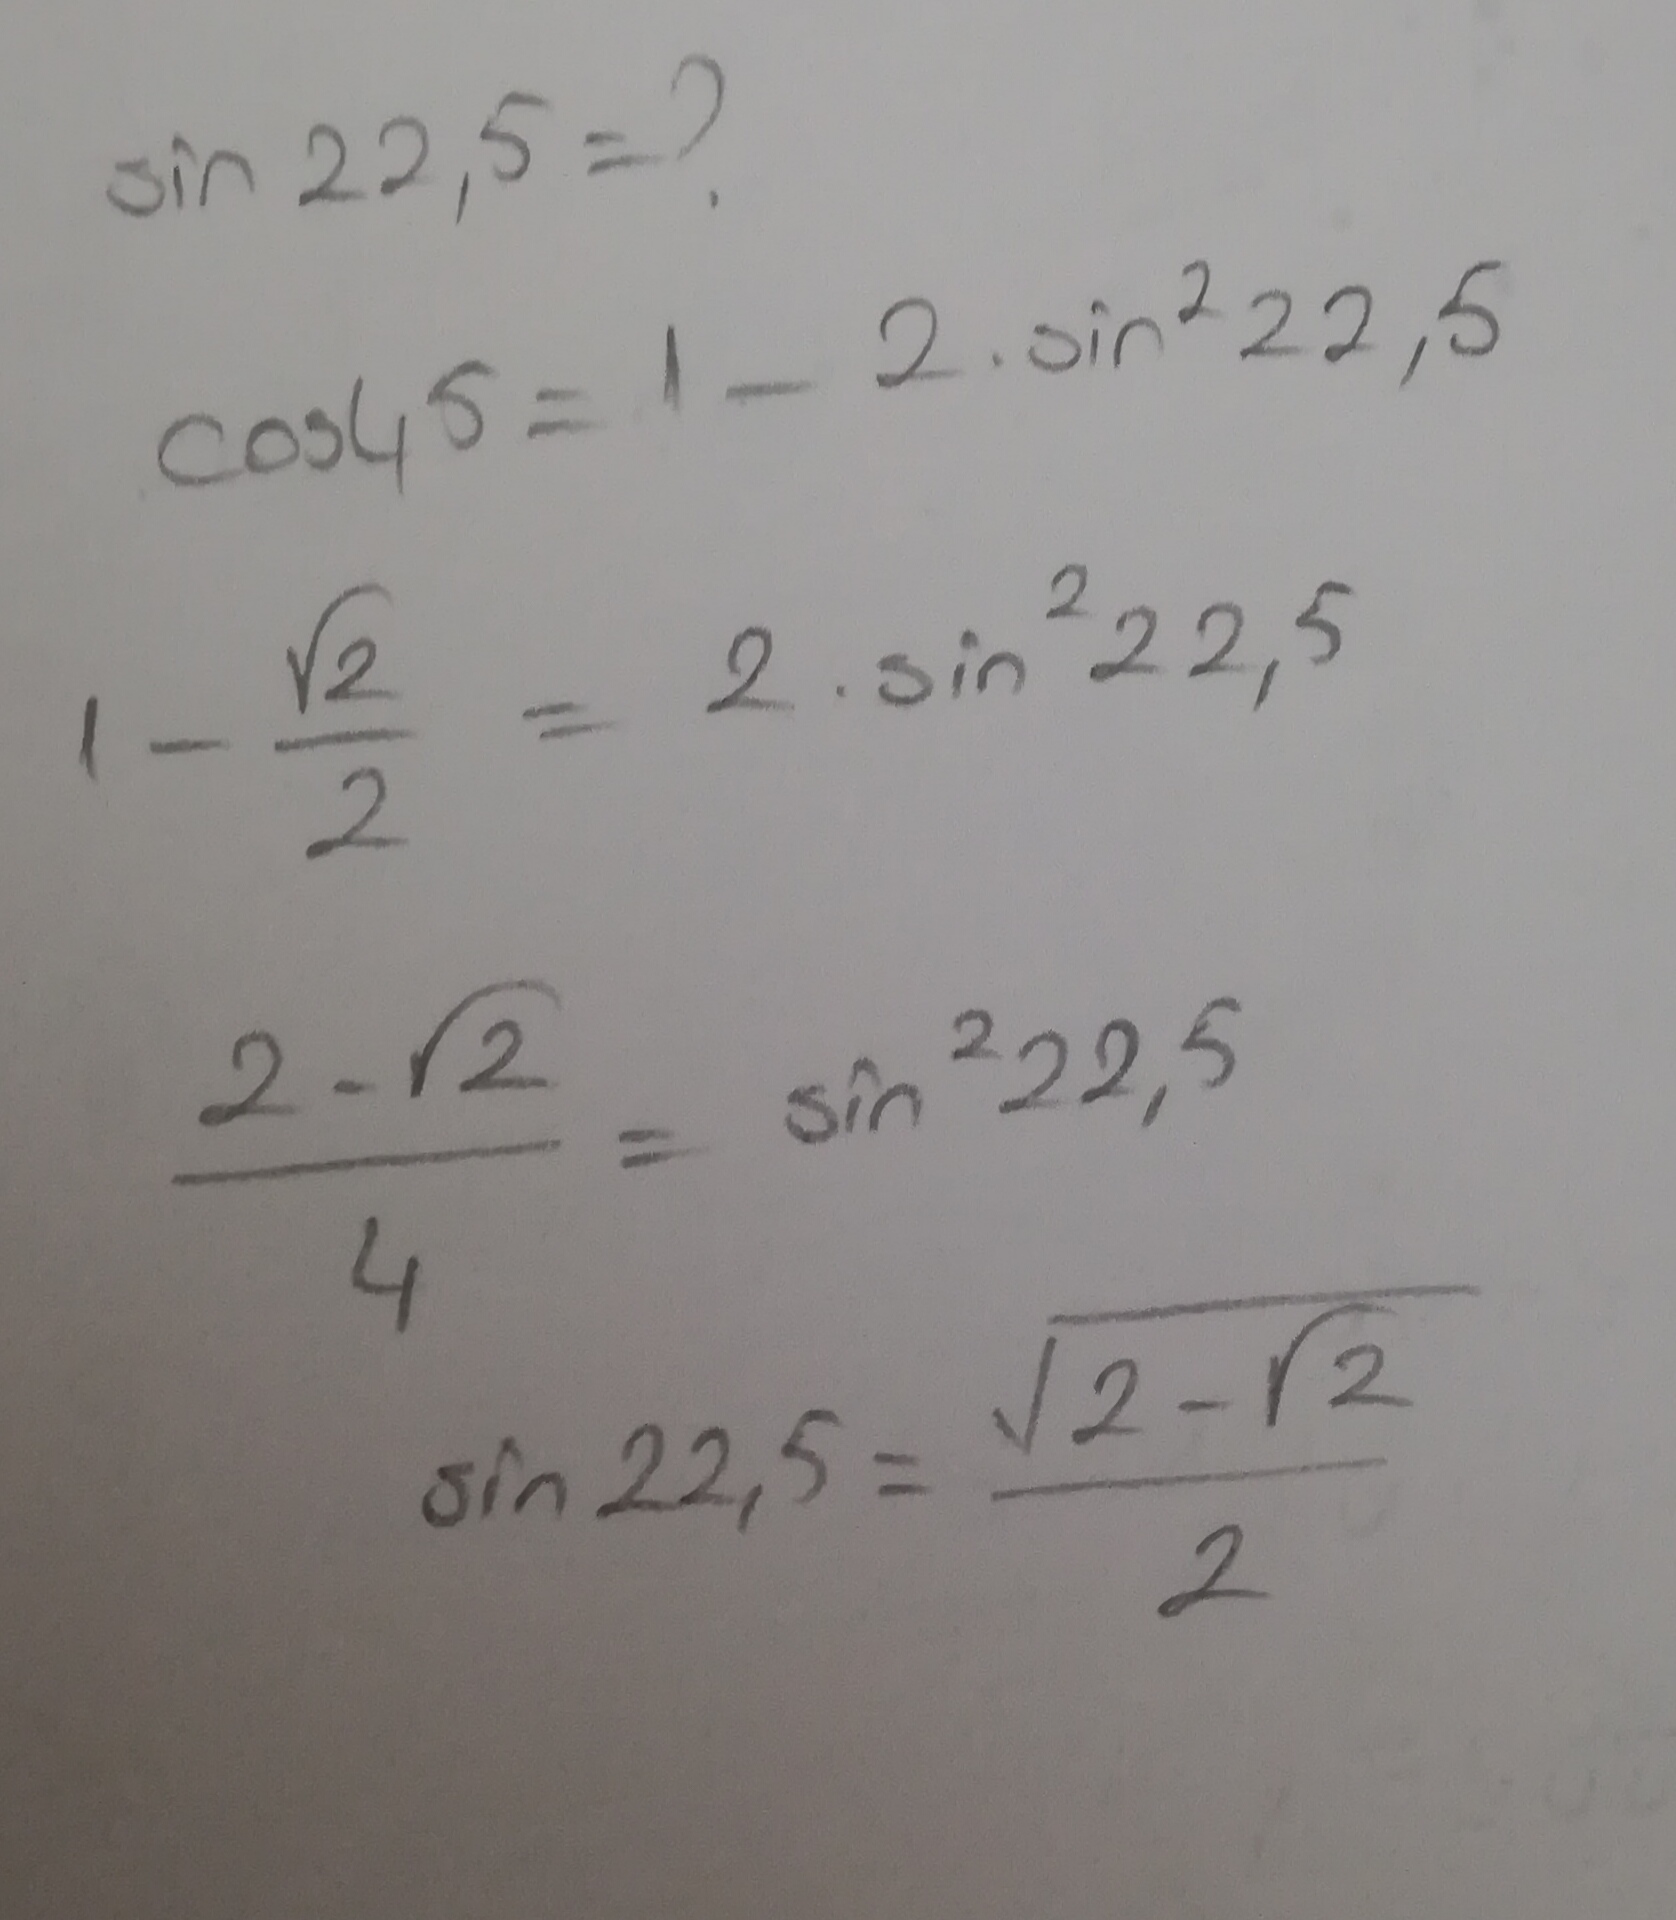 sin 22,5 = ?
cos45 = 1 - 2 . sin² 22,5
1 - √2/2 = 2 . sin² 22,5
(2 - √2)/4 = sin² 22,5
sin 22,5 = √(2 - √2)/2